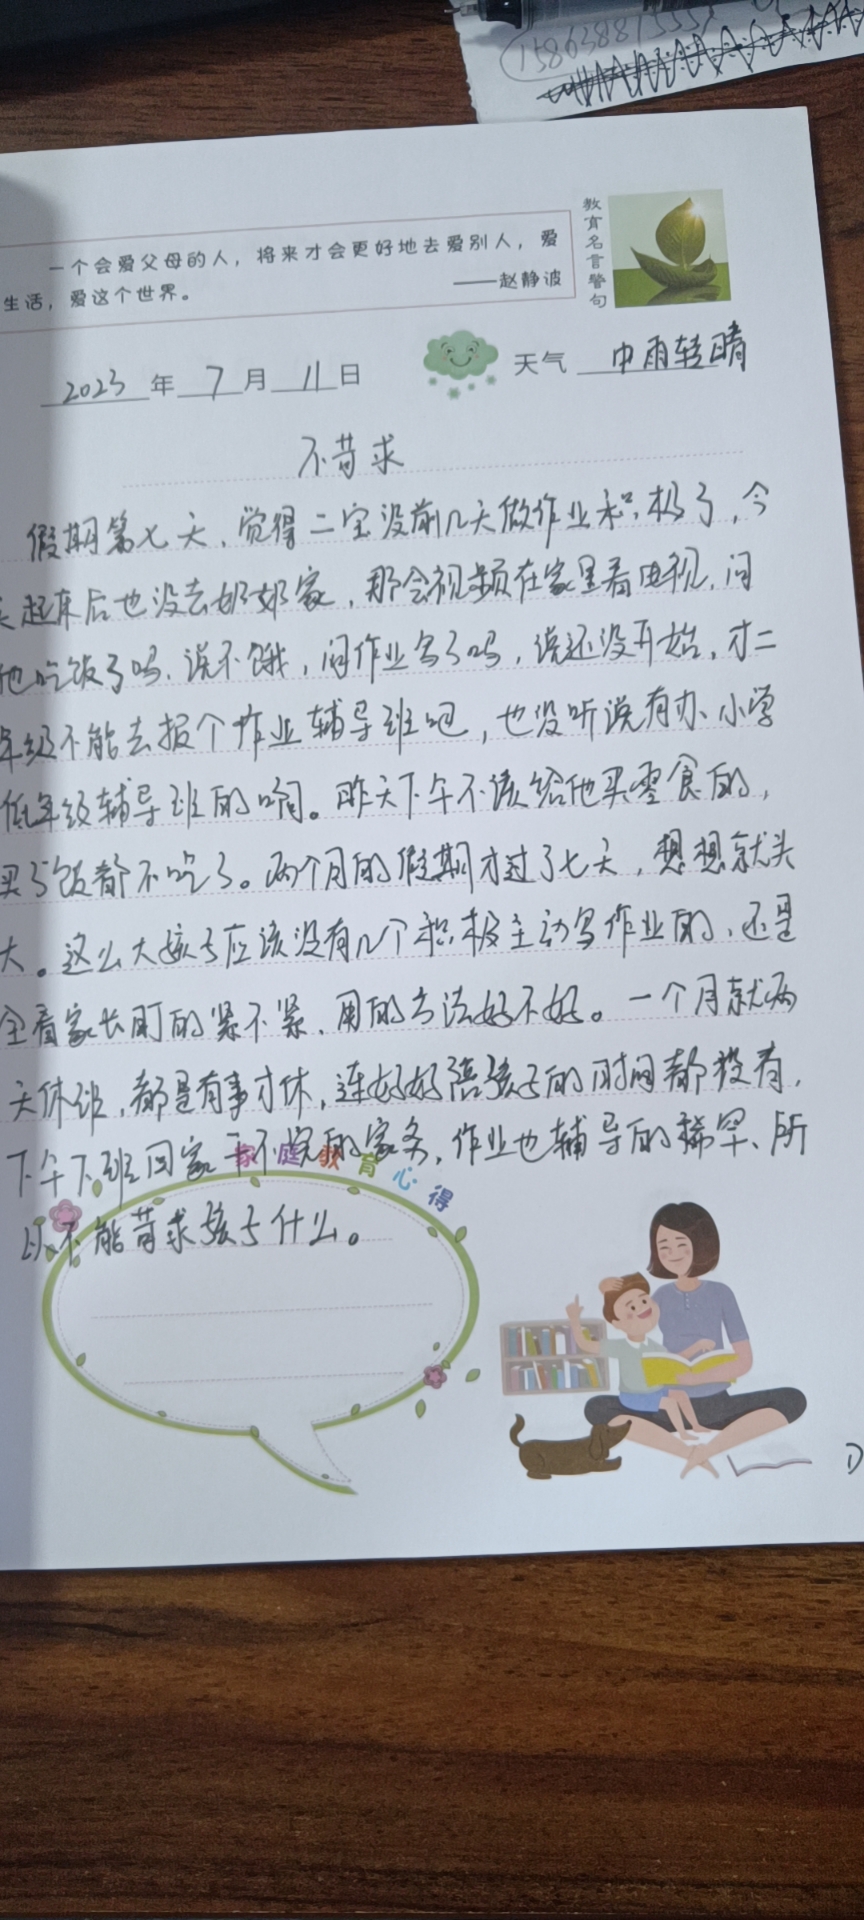 一个会爱父母的人，将来才会更好地去爱别人，爱
生活，爱这个世界。
——赵静波
教育名言警句
2023年7月11日
天气 中雨转晴
不苛求
假期第七天，觉得二宝没前几天做作业积极了，今
天起床后也没去奶奶家，那会视频在家里看电视，问
他吃饭了吗，说不饿，问作业写了吗，说还没开始，才二
年级不能去报个作业辅导班吧，也没听说有办小学
低年级辅导班的啊。昨天下午不该给他买零食的，
买了饭都不吃了。两个月的假期才过了七天，想想就头
大。这么大孩子应该没有几个积极主动写作业的，还是
全看家长盯的紧不紧，用的方法好不好。一个月就两
天休班，都是有事才休，连好好陪孩子的时间都没有，
下午下班回家干不完的家务，作业也辅导的稀罕、所
家庭教育心得
以不能苛求孩子什么。